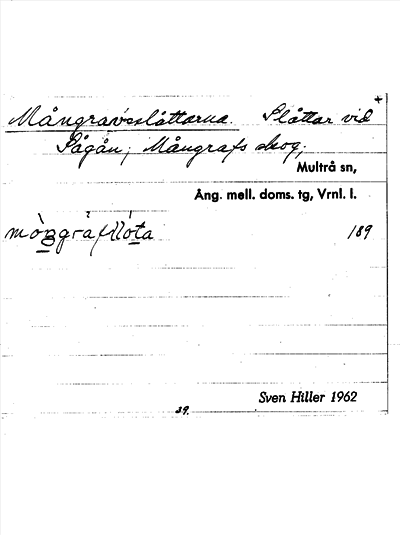 +
Mångravsslåttarna. Slåttar vid
Pågån; Mångrafs skog,
Multrå sn,
Ång. mell. doms. tg, Vrnl. l.
189
Sven Hiller 1962
39.